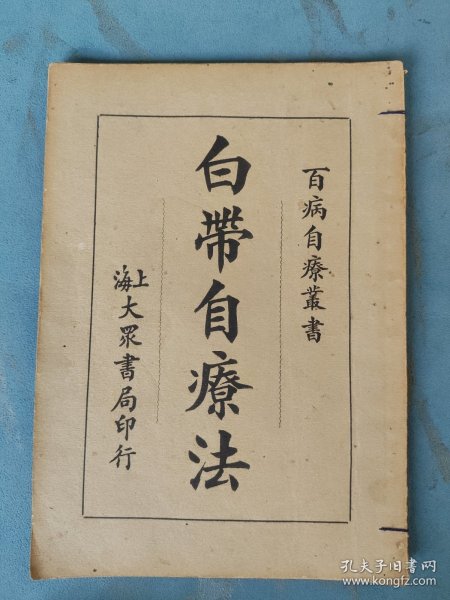 百病自療叢書
白帶自療法
上海大眾書局印行
孔夫子旧书网
www.kongfz.com